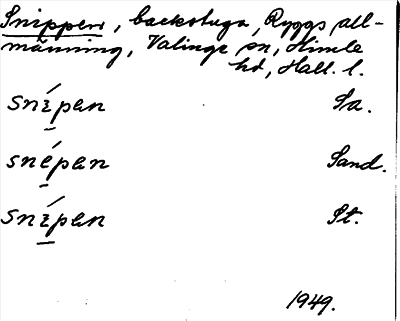 Snippen, backstuga, Ryggs all-
männing, Valinge sn, Himle
hd, Hall. l.
snípen Sa.
snépen Sand.
snípen St.
1949.